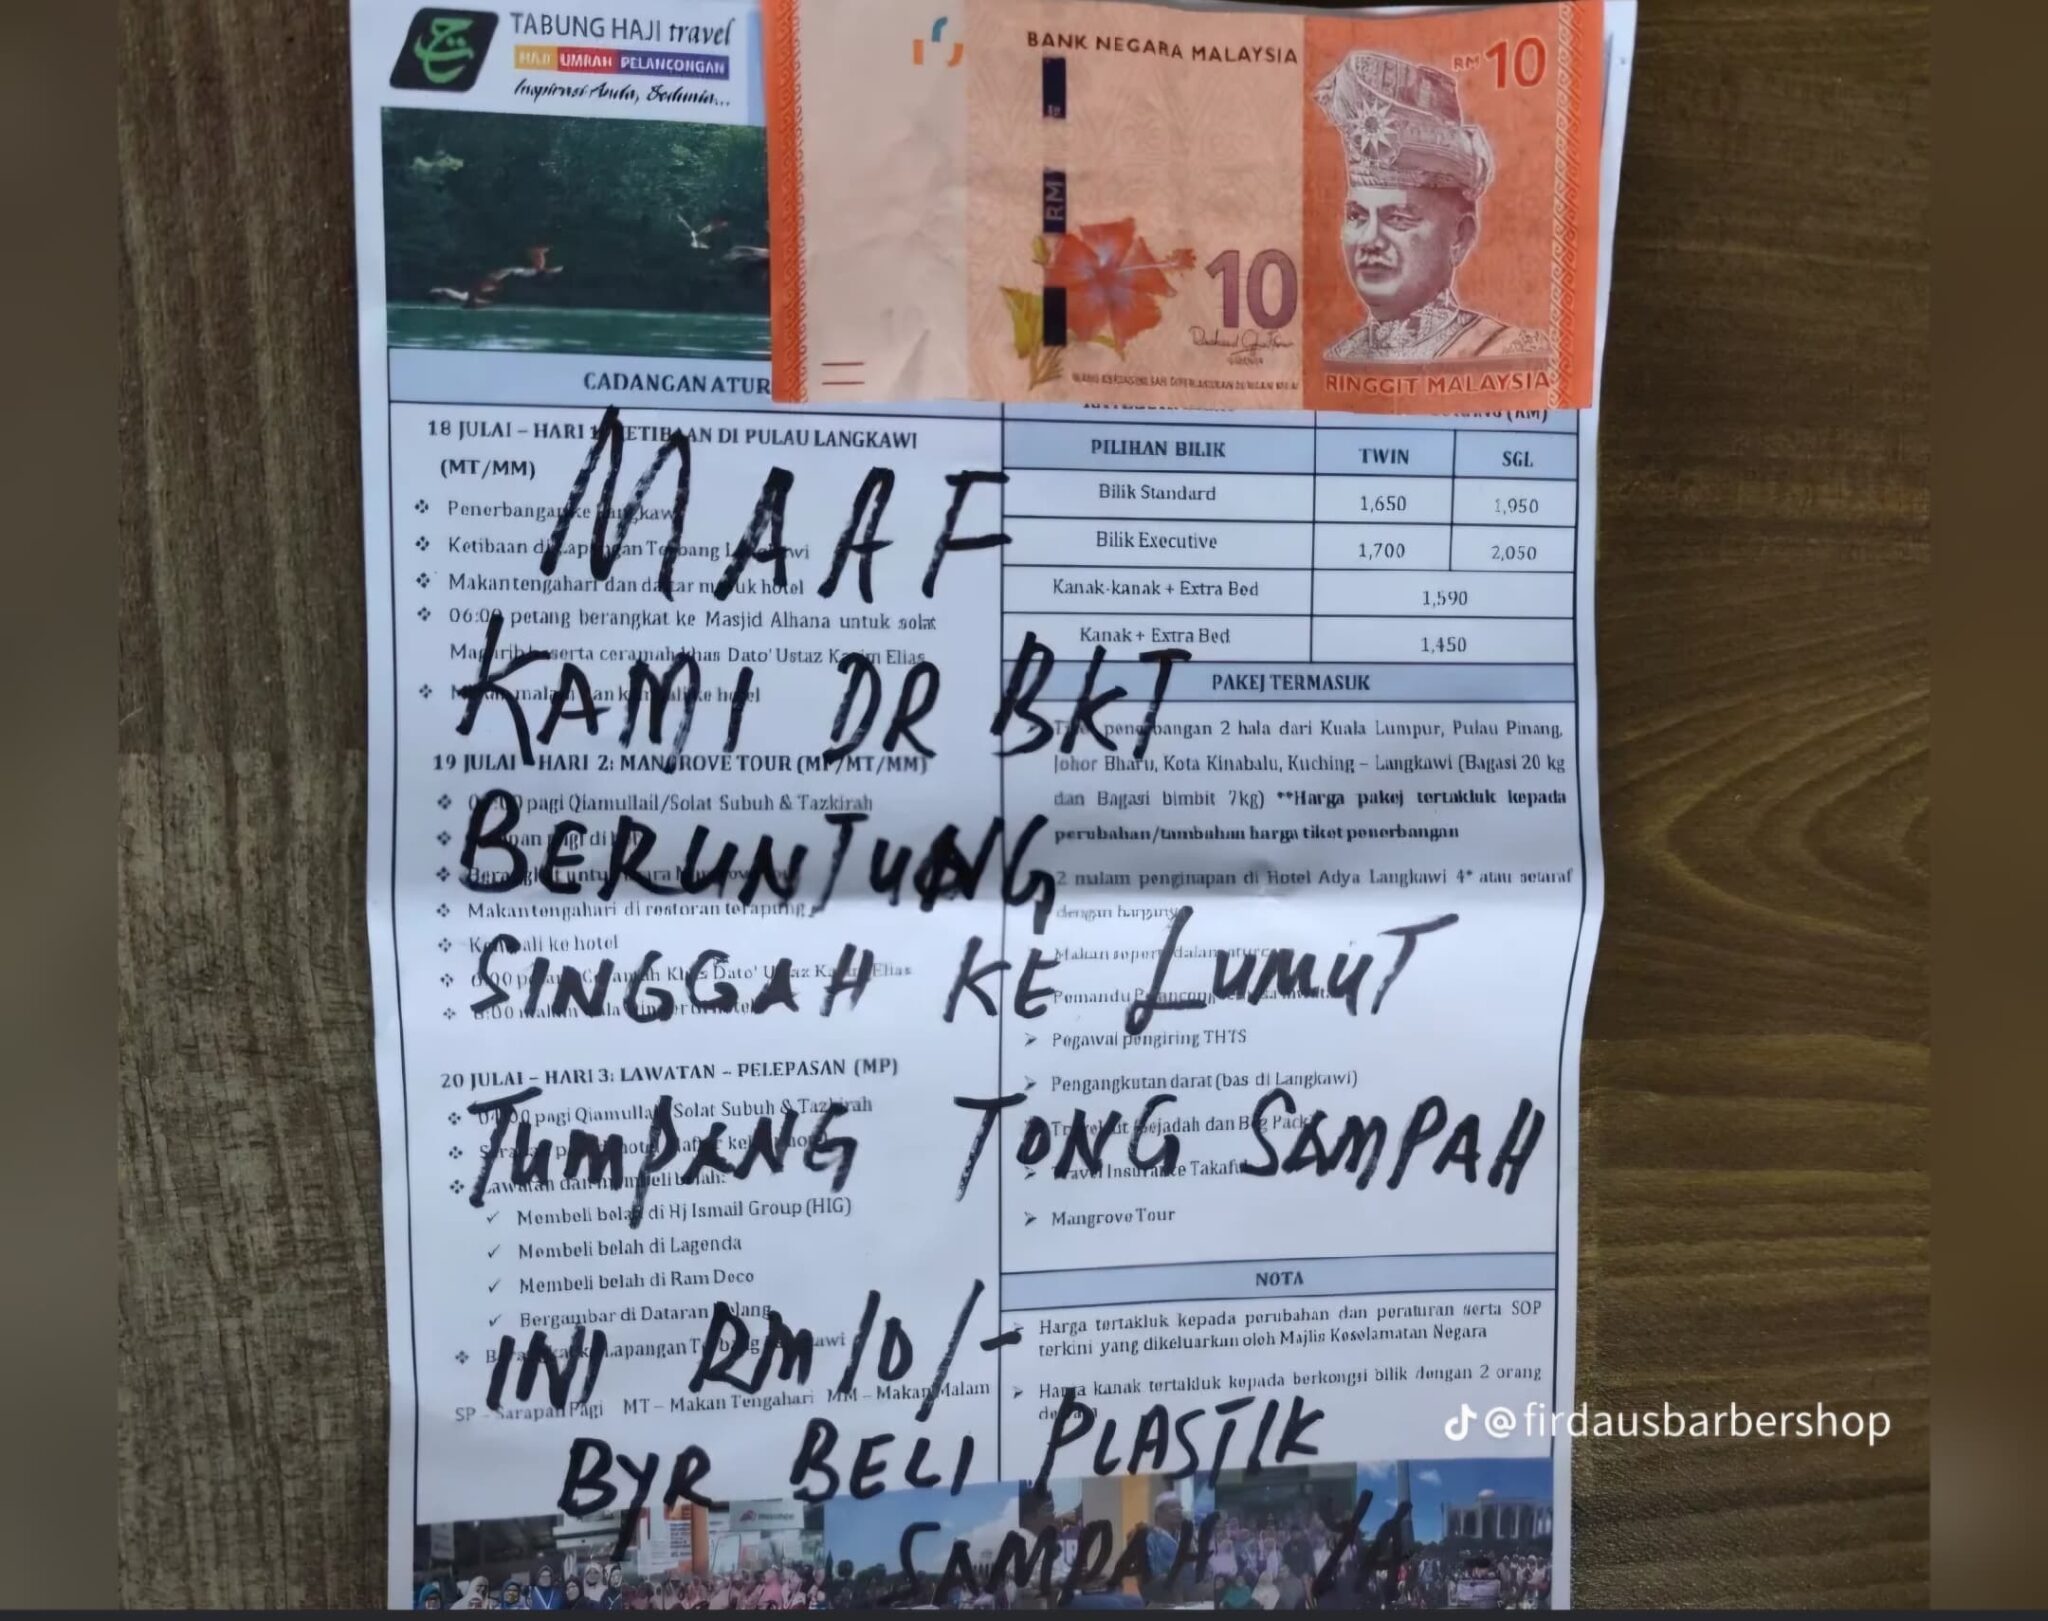 TABUNG HAJI travel
HAJI UMRAH PELANCONGAN
Inspirasi Anda, Sedunia...
BANK NEGARA MALAYSIA
RM10
RM
10
RINGGIT MALAYSIA
CADANGAN ATUR
18 JULAI – HARI 1: KETIBAAN DI PULAU LANGKAWI
(MT/MM)
Penerbangan ke Langkawi
Ketibaan di Lapangan Terbang Langkawi
Makan tengahari dan daftar masuk hotel
06:00 petang berangkat ke Masjid Alhana untuk solat
Maghrib beserta ceramah khas Dato' Ustaz Kazim Elias
19 JULAI – HARI 2: MANGROVE TOUR (MP/MT/MM)
pagi Qiamullail/Solat Subuh & Tazkirah
Makan tengahari di restoran terapung
Kembali ke hotel
20 JULAI – HARI 3: LAWATAN – PELEPASAN (MP)
pagi Qiamullail/Solat Subuh & Tazkirah
Lawatan dan membeli belah:
Membeli belah di Hj Ismail Group (HIG)
Membeli belah di Lagenda
Membeli belah di Ram Deco
Bergambar di Dataran Helang
SP – Sarapan Pagi MT – Makan Tengahari MM – Makan Malam
PILIHAN BILIK TWIN SGL
Bilik Standard 1,650 1,950
Bilik Executive 1,700 2,050
Kanak-kanak + Extra Bed 1,590
Kanak + Extra Bed 1,450
PAKEJ TERMASUK
penerbangan 2 hala dari Kuala Lumpur, Pulau Pinang,
Johor Bharu, Kota Kinabalu, Kuching – Langkawi (Bagasi 20 kg
dan Bagasi bimbit 7kg) **Harga pakej tertakluk kepada
perubahan/tambahan harga tiket penerbangan
2 malam penginapan di Hotel Adya Langkawi 4* atau setaraf
dengan harganya
Pegawai pengiring THTS
Pengangkutan darat (bas di Langkawi)
Travel Insurance Takaful
Mangrove Tour
NOTA
Harga tertakluk kepada perubahan dan peraturan serta SOP
terkini yang dikeluarkan oleh Majlis Keselamatan Negara
Harga kanak tertakluk kepada berkongsi bilik dengan 2 orang
MAAF
KAMI DR BKT
BERUNTUNG
SINGGAH KE LUMUT
TUMPANG TONG SAMPAH
INI RM10/-
BYR BELI PLASTIK
SAMPAH YA
@firdausbarbershop